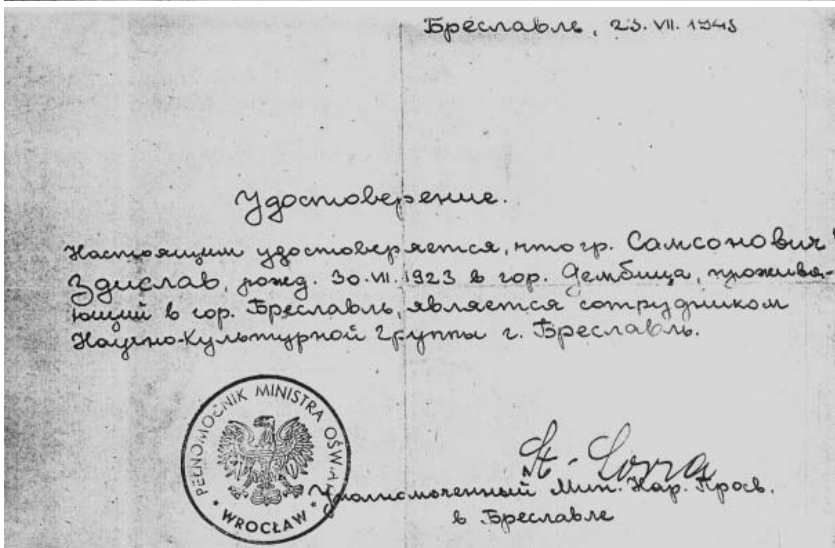 Бреславль, 23. VII. 1945
Удостоверение.
Настоящим удостоверяется, что гр. Самсонович
Здислав, рожд. 30.VI.1923 в гор. Дембица, прожива-
ющий в гор. Бреславль, является сотрудником
Научно-Культурной Группы г. Бреславль.
PEŁNOMOCNIK MINISTRA OŚW.
* WROCŁAW *
St.
Уполномоченный Мин. Нар. Просв.
в Бреславле